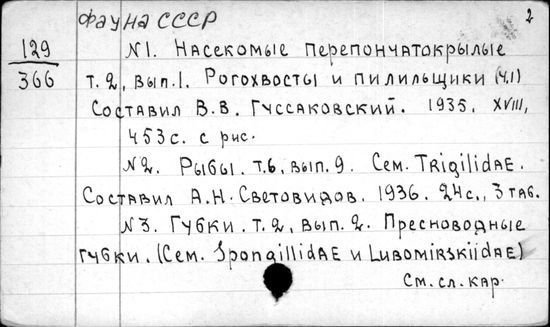 Фауна СССР
2
129
366
N1. Насекомые перепончатокрылые
т.2, вып.1. Рогохвосты и пилильщики (ч.1)
Составил В.В. Гуссаковский. 1935. XVIII,
453 с. с рис.
N2. Рыбы. т.6, вып. 9. Сем. Trigilidae.
Составил А.Н. Световидов. 1936. 24с., 3 таб.
N3. Губки. т.2, вып. 2. Пресноводные
губки. (Сем. Spongillidae и Lubomirskiidae)
См. сл. кар.